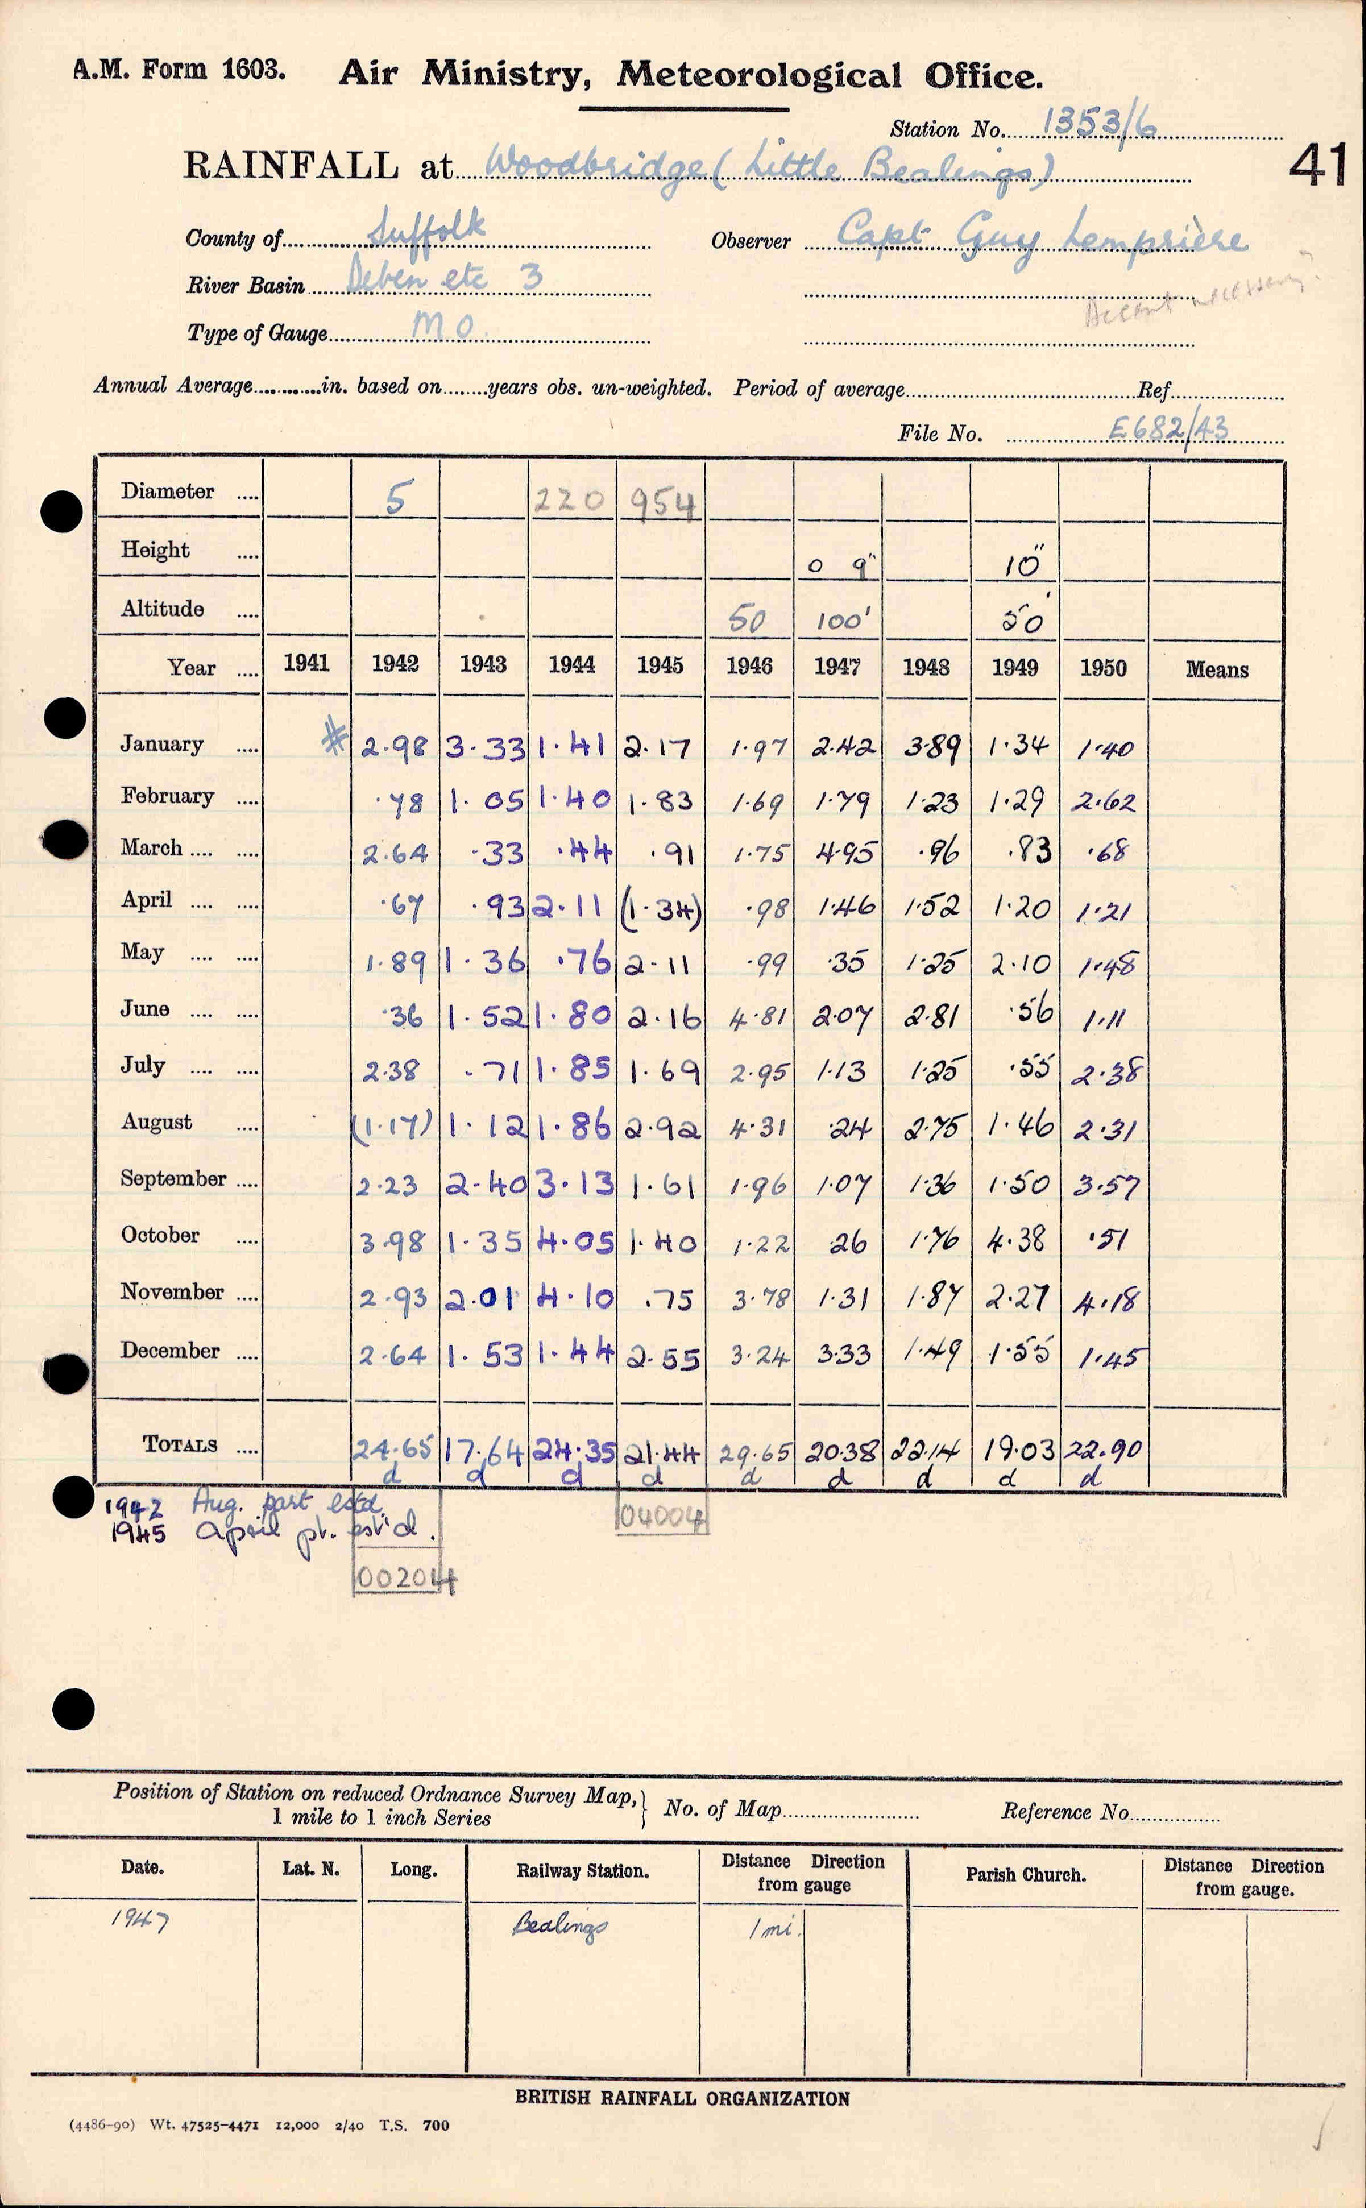 A.M. Form 1603. Air Ministry, Meteorological Office.
Station No. 1353/6
41
RAINFALL at Woodbridge (Little Bealings)
County of Suffolk Observer Capt Guy Lemprière
River Basin Deben etc 3
necessary?
Type of Gauge M O.
Annual Average in. based on years obs. un-weighted. Period of average Ref
File No. E682/43
Diameter 5 220 954
Height 0 9" 10"
Altitude 50 100' 50'
Year 1941 1942 1943 1944 1945 1946 1947 1948 1949 1950 Means
January # 2.98 3.33 1.41 2.17 1.97 2.42 3.89 1.34 1.40
February .78 1.05 1.40 1.83 1.69 1.79 1.23 1.29 2.62
March .... 2.64 .33 .44 .91 1.75 4.95 .96 .83 .68
April .... .67 .93 2.11 (1.34) .98 1.46 1.52 1.20 1.21
May .... 1.89 1.36 .76 2.11 .99 .35 1.25 2.10 1.48
June .... .36 1.52 1.80 2.16 4.81 2.07 2.81 .56 1.11
July .... 2.38 .71 1.85 1.69 2.95 1.13 1.25 .55 2.38
August (1.17) 1.12 1.86 2.92 4.31 .24 2.75 1.46 2.31
September 2.23 2.40 3.13 1.61 1.96 1.07 1.36 1.50 3.57
October 3.98 1.35 4.05 1.40 1.22 .26 1.76 4.38 .51
November 2.93 2.01 4.10 .75 3.78 1.31 1.87 2.27 4.18
December 2.64 1.53 1.44 2.55 3.24 3.33 1.49 1.55 1.45
TOTALS 24.65 17.64 24.35 21.44 29.65 20.38 22.14 19.03 22.90
d d d d d d d d d
1942 Aug. part estd 04004
1945 April pt. est'd.
00204
Position of Station on reduced Ordnance Survey Map, 1 mile to 1 inch Series } No. of Map Reference No.
Date. Lat. N. Long. Railway Station. Distance Direction from gauge Parish Church. Distance Direction from gauge.
1947 Bealings 1 mi.
BRITISH RAINFALL ORGANIZATION
(4486-90) Wt. 47525-4471 12,000 2/40 T.S. 700